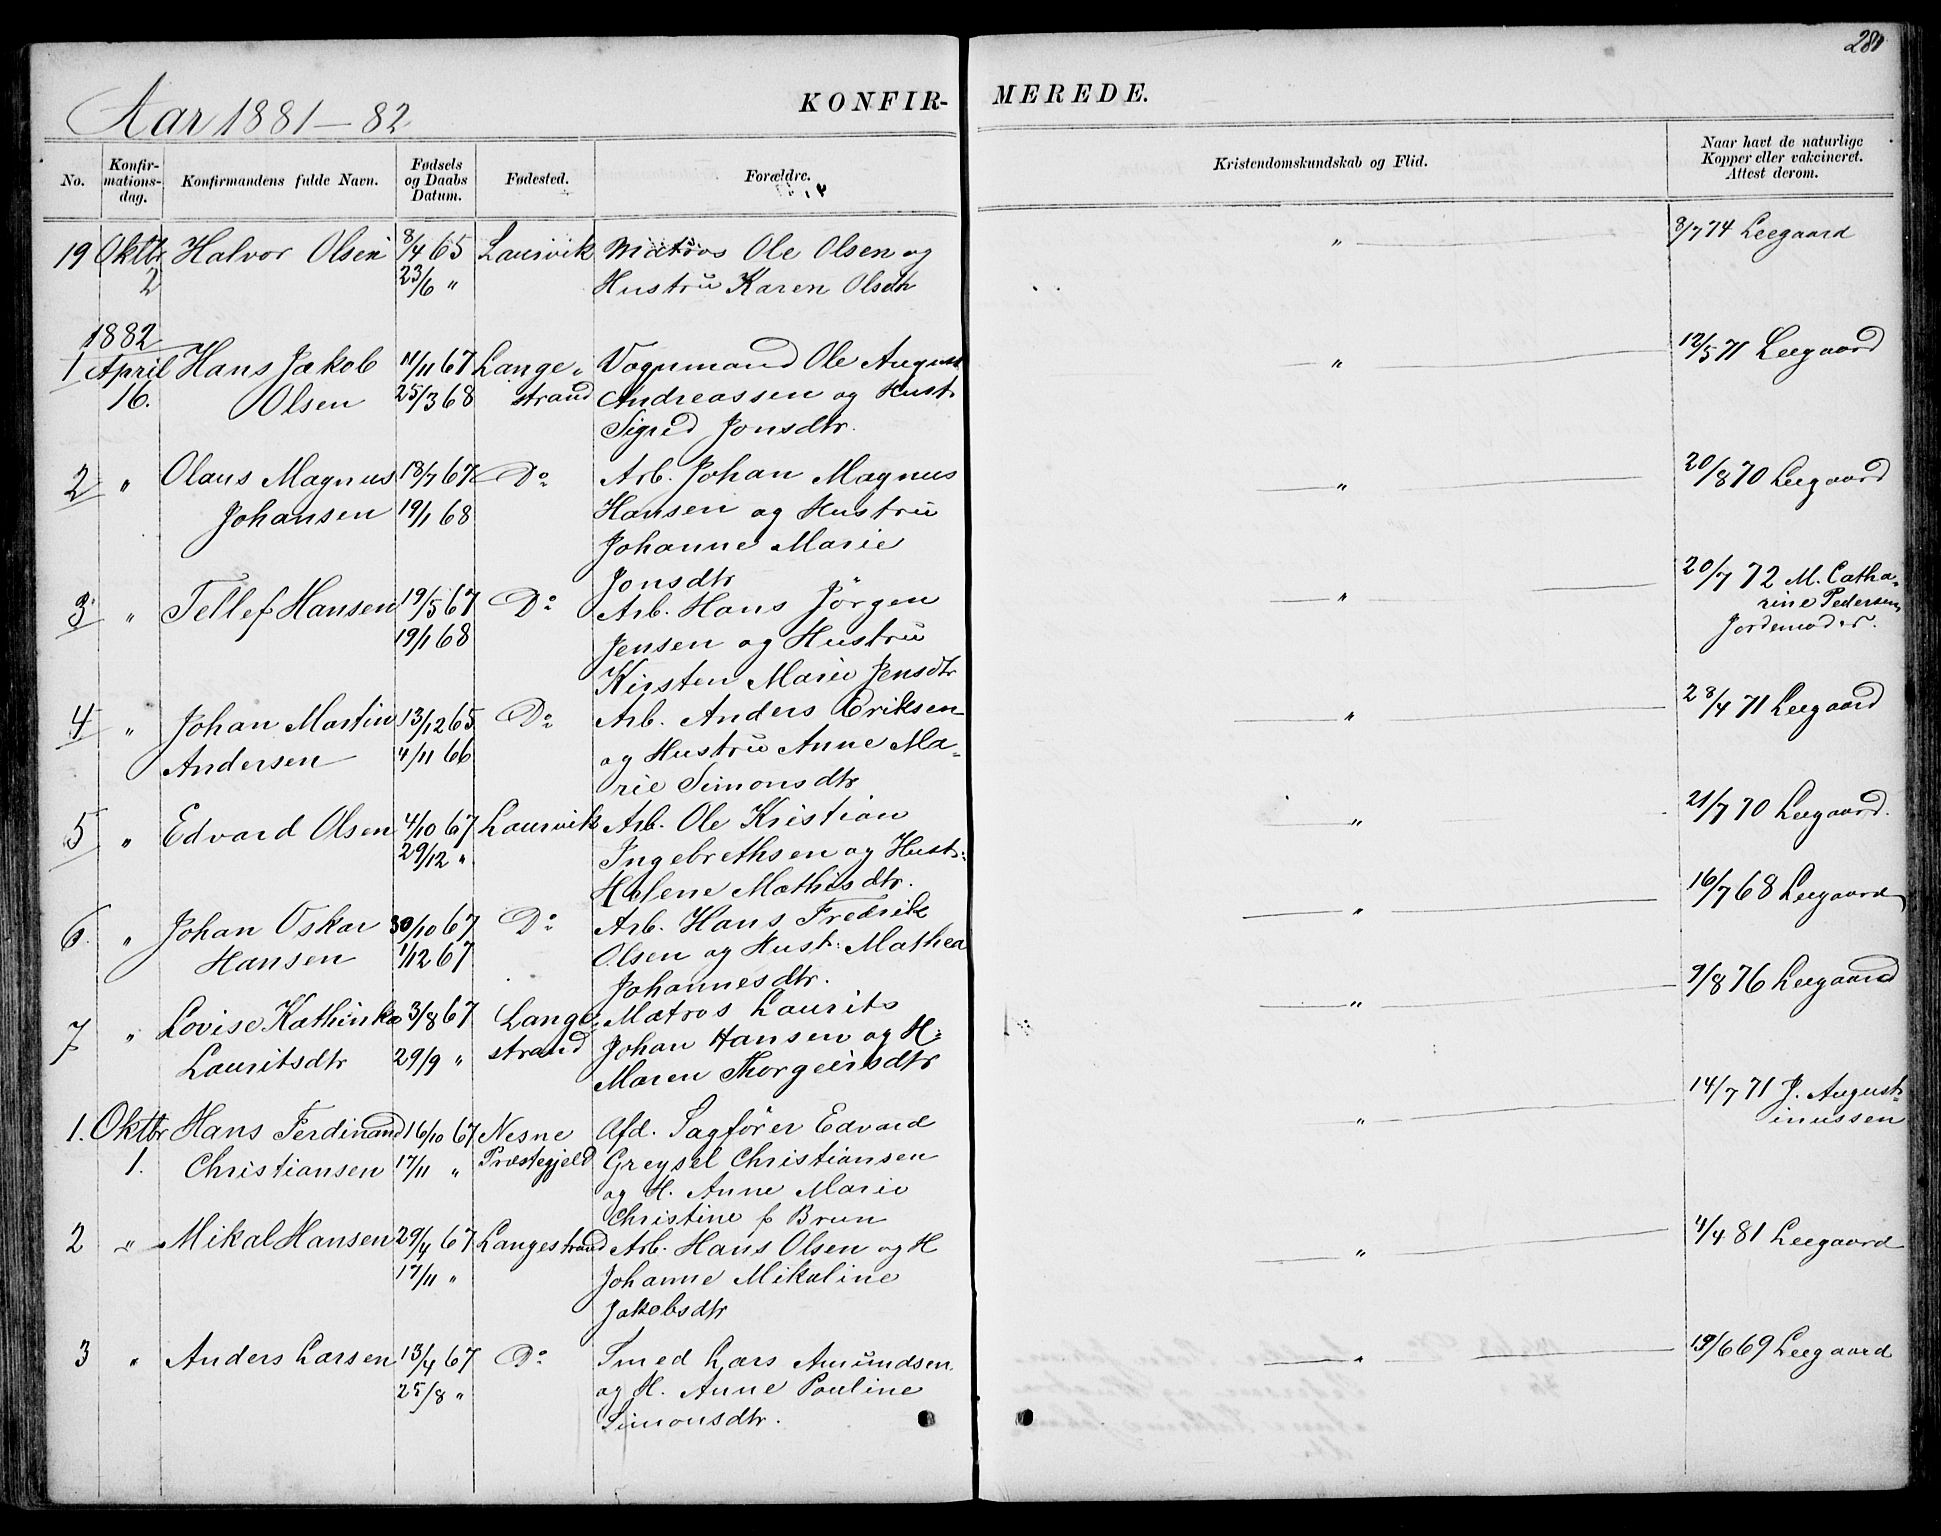 281
Aar 1881-82
KONFIR- MEREDE.
No. Konfir-mations-dag. Konfirmandens fulde Navn. Fødsels og Daabs Datum. Fødested. Forældre. Kristendomskundskab og Flid. Naar havt de naturlige Kopper eller vakcineret. Attest derom.
19 Oktbr Halvor Olsen 8/4 65 Laurvik Matros Ole Olsen og " 8/7 74 Leegaard
2 23/6 " Hustru Karen Olsdtr
1882
1 April Hans Jakob 11/11 67 Lange- Vognmand Ole August " 12/5 71 Leegaard
16. Olsen 25/3 68 strand Andreassen og Hust.
Sigrid Jonsdtr.
2 " Olaus Magnus 18/7 67 Do Arb. Johan Magnus " 20/8 70 Leegaard
Johansen 19/1 68 Hansen og Hustru
Johanne Marie
Jonsdtr
3 " Tellef Hansen 19/5 67 Do Arb. Hans Jörgen " 20/7 72 M. Catha-
19/1 68 Jensen og Hustru rine Pedersen,
Kirsten Marie Jensdtr Jordemoder.
4 " Johan Martin 13/12 65 Do Arb. Anders Eriksen " 28/4 71 Leegaard
Andersen 4/11 66 og Hustru Anne Ma-
rie Simonsdtr
5 " Edvard Olsen 4/10 67 Laurvik Arb. Ole Kristian " 21/7 70 Leegaard.
29/12 " Ingebrethsen og Hust:
Helene Mathisdtr.
6. " Johan Oskar 30/10 67 Do Arb. Hans Fredrik " 16/7 68 Leegaard
Hansen 1/12 67 Olsen og Hust: Mathea
Johannesdtr.
7 " Lovise Kathinka 3/8 67 Lange- Matros Laurits " 9/8 76 Leegaard
Lauritsdtr 29/9 " strand Johan Hansen og H:
Maren Thorgeirsdtr
1. Oktbr Hans Ferdinand 16/10 67 Nesne Afd. Sagfører Edvard " 14/7 71 J. August-
1. Christiansen 17/11 " Præstegjeld Greysel Christiansen inussen
og H. Anne Marie
Christine f Brun
2 " Mikal Hansen 29/4 67 Langestrand Arb. Hans Olsen og H " 4/4 81 Leegaard
17/11 " Johanne Mikaline
Jakobsdtr
3 " Anders Larsen 13/4 67 Do Smed Lars Amundsen " 19/6 69 Leegaard
25/8 " og H. Anne Pauline
Simonsdtr.